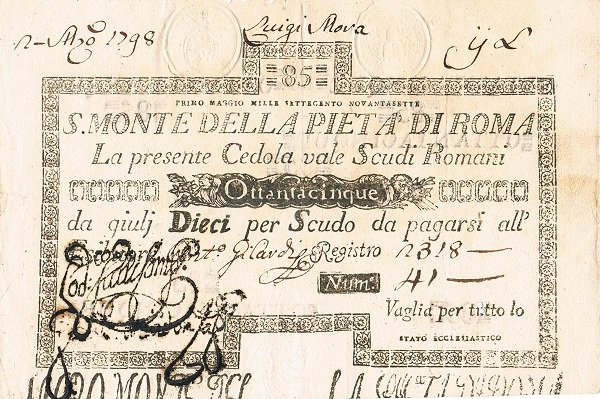 2 - Mgo 1798
Luigi Mora
85
PRIMO MAGGIO MILLE SETTECENTO NOVANTASETTE
S. MONTE DELLA PIETA' DI ROMA
La presente Cedola vale Scudi Romani
Ottantacinque
da giulj Dieci per Scudo da pagarsi all'
Gilardi Registro 2318
Num. 41
Vaglia per tutto lo
STATO ECCLESIASTICO